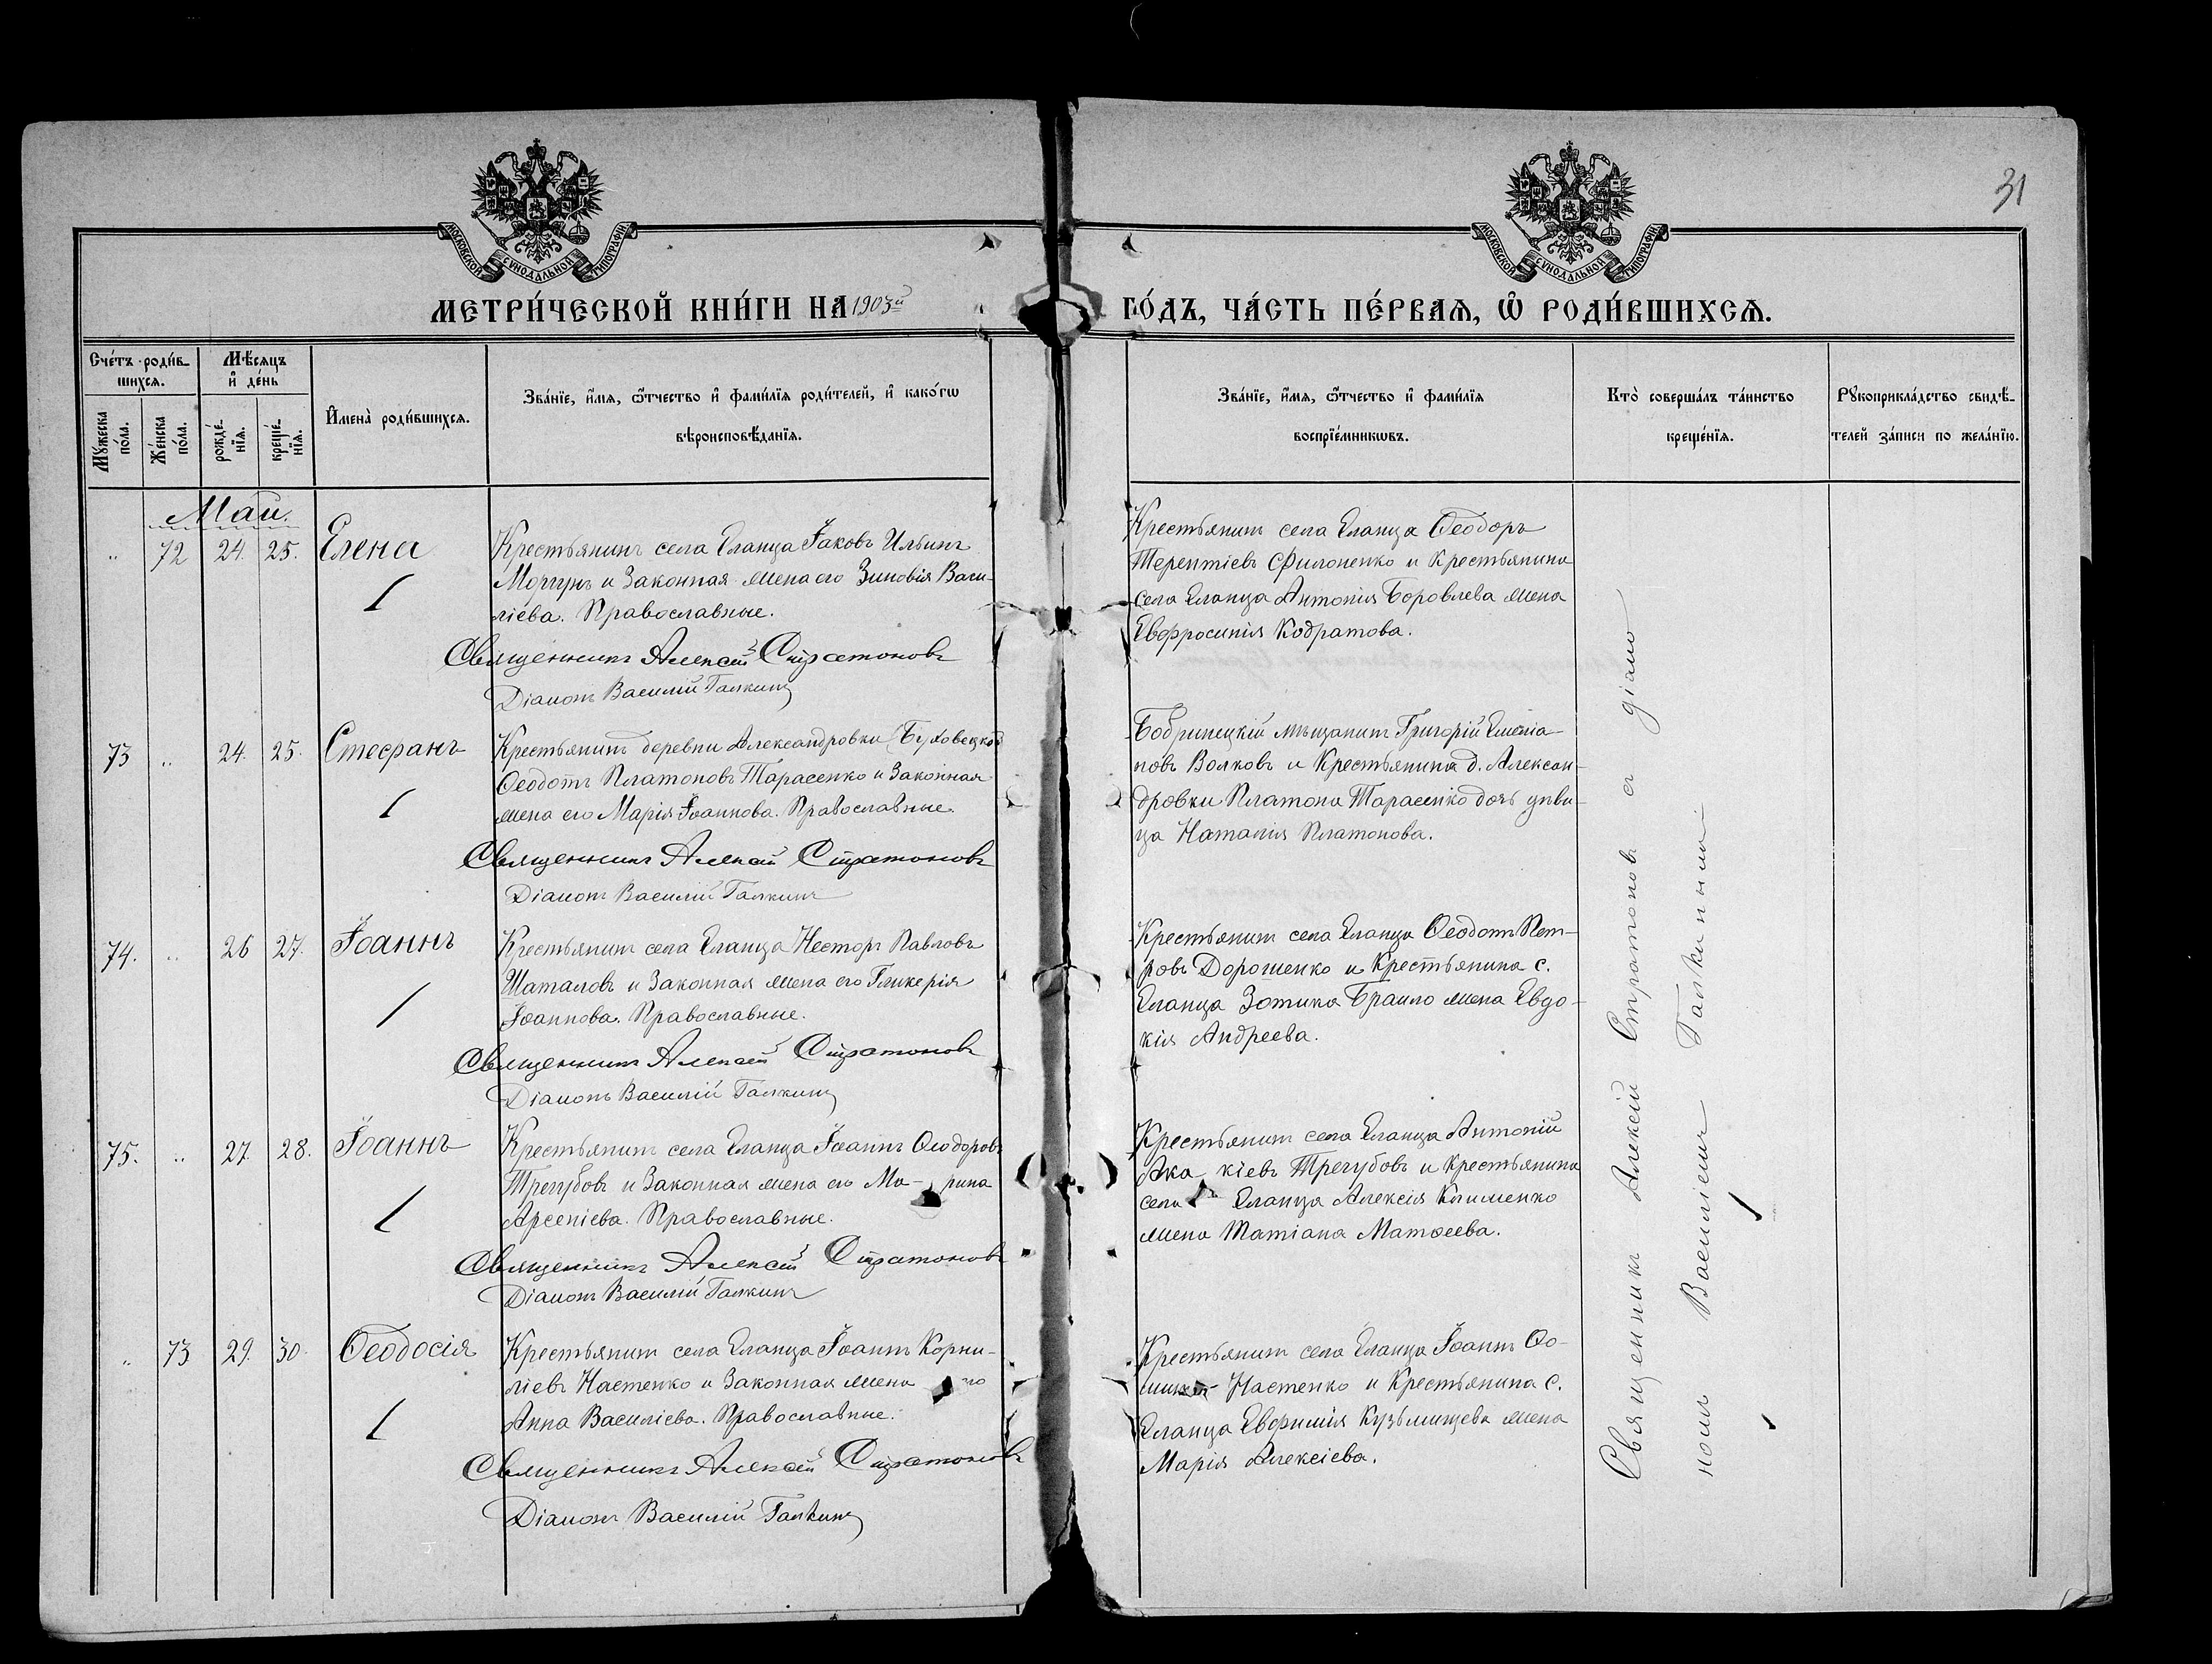 31
МОСКОВСКОЙ СѴНОДАЛЬНОЙ ТИПОГРАФІИ
МОСКОВСКОЙ СѴНОДАЛЬНОЙ ТИПОГРАФІИ
МЕТРИ́ЧЕСКОЙ КНИ́ГИ НА 1903й ГО́ДЪ, ЧА́СТЬ ПЕ́РВАЯ, Ѡ҆ РОДИ́ВШИХСЯ.
Сче́тъ роди́в-
шихся.
Мѣ́сяцъ
и҆ де́нь
Мꙋ́жеска по́ла.
Же́нска по́ла.
рожде́нїя.
креще́нїя.
И҆мена̀ роди́вшихся.
Зва́нїе, и҆́мя, ѻ҆́тчество и҆ фами́лїя роди́телей, и҆ како́гѡ
вѣроисповѣ́данїя.
Зва́нїе, и҆́мя, ѻ҆́тчество и҆ фами́лїя
воспрїе́мникѡвъ.
Кто̀ соверша́лъ та́инство
креще́нїя.
Рꙋкоприкла́дство свидѣ́-
телей за́писи по жела́нїю.
Май.
„ 72 24. 25. Елена
Крестьянинъ села Еланца Іаковъ Ильинъ
Моргунъ и Законная жена его Зиновія Васи-
ліева. Православные.
Священникъ Алексій Стратоновъ
Діаконъ Василій Галкинъ
Крестьянин села Еланца Ѳеодоръ
Терентіевъ Филоненко и Крестьянина
села Еланца Антонія Боровлева жена
Евфросинія Кодратова.
73 „ 24. 25. Стефанъ
Крестьянинъ деревни Александровки
Ѳеодотъ Платоновъ Тарасенко и Законная
жена его Марія Іоаннова. Православные.
Священникъ Алексій Стратоновъ
Діаконъ Василій Галкинъ
Бобринецкій мѣщанинъ Григорій Емеліа-
новъ Волковъ и Крестьянина д. Алексан-
дровки Платона Тарасенко дочь дѣви-
ца Наталія Платонова.
74. „ 26 27. Іоаннъ
Крестьянинъ села Еланца Несторъ Павловъ
Шаталовъ и Законная жена его Гликерія
Іоаннова. Православные.
Священникъ Алексій Стратоновъ
Діаконъ Василій Галкинъ
Крестьянин села Еланца Ѳеодотъ Пет-
ровъ Дорошенко и Крестьянина с.
Еланца Зотика Браило жена Евдо-
кія Андреева.
75. „ 27. 28. Іоаннъ
Крестьянинъ села Еланца Іоаннъ Ѳеодоровъ
Трегубовъ и Законная жена его Ма- рина
Арсеніева. Православные.
Священникъ Алексій Стратоновъ
Діаконъ Василій Галкинъ
Крестьянин села Еланца Антоній
Ака кіевъ Трегубовъ и Крестьянина
села Еланца Алексія Клименко
жена Татіана Матѳеева.
„ 73 29. 30. Ѳеодосія
Крестьянинъ села Еланца Іоаннъ Корни-
ліевъ Настенко и Законная жена его
Анна Василіева. Православные.
Священникъ Алексій Стратоновъ
Діаконъ Василій Галкинъ
Крестьянин села Еланца Іоаннъ Ѳо-
Настенко и Крестьянина с.
Еланца Евфимія Кузьмищева жена
Марія Алексіева.
Священникъ Алексій Стратоновъ съ діако-
номъ Василіемъ Галкинымъ